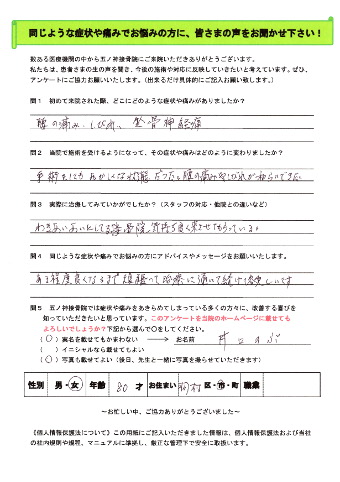 同じような症状や痛みでお悩みの方に、皆さまの声をお聞かせ下さい！
数ある医療機関の中から五ノ神接骨院にご来院いただきありがとうございます。
私たちは、患者さまの生の声を聞き、今後の施術や対応に反映していきたいと考えています。ぜひ、
アンケートにご協力お願いいたします。（出来るだけ具体的にご記入お願い致します。）
問１　初めて来院された際、どこにどのような症状や痛みがありましたか？
腰の痛み、しびれ、坐骨神経痛
問２　当院で施術を受けるようになって、その症状や痛みはどのように変わりましたか？
手術しても おかしくない状態だった。腰の痛みやしびれが和らいできた
問３　実際に治療してみていかがでしたか？（スタッフの対応・他院との違いなど）
わきあいあいとしてる接骨院、気持ち良く来させてもらっている。
問４　同じような症状や痛みでお悩みの方にアドバイスやメッセージをお願いいたします。
ある程度良くなるまで 治療に通って続け欲しいです
問５　五ノ神接骨院では症状や痛みをあきらめてしまっている多くの方々に、改善する喜びを
知っていただきたいと思っています。このアンケートを当院のホームページに載せても
よろしいでしょうか？下記から選んで○をしてください。
（○）実名を載せてもかまわない → お名前 井口
（　）イニシャルなら載せてもよい
（○）写真も載せてよい（後日、先生と一緒に写真を撮らせていただきます）
性別 男・女 年齢 80 才 お住まい 羽村 区・市・町 職業
～お忙しい中、ご協力ありがとうございました～
《個人情報保護法について》この用紙にご記入いただきました情報は、個人情報保護法および当社
の社内規則や規程、マニュアルに準拠し、厳正な管理下で安全に取扱います。